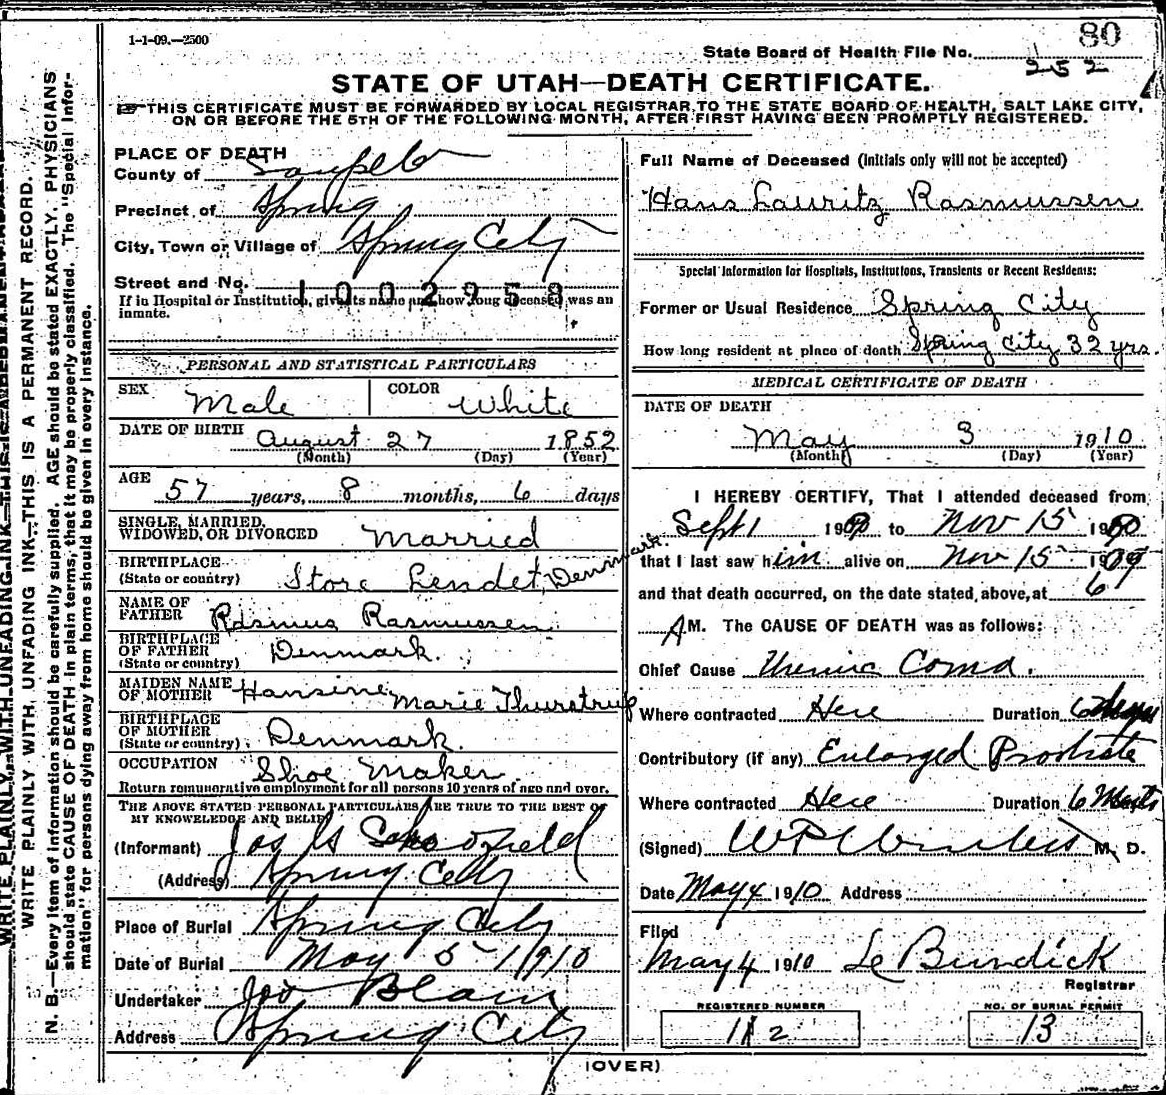 1-1-09.—2500
80
State Board of Health File No.
252
STATE OF UTAH—DEATH CERTIFICATE.
☞THIS CERTIFICATE MUST BE FORWARDED BY LOCAL REGISTRAR TO THE STATE BOARD OF HEALTH, SALT LAKE CITY,
ON OR BEFORE THE 5TH OF THE FOLLOWING MONTH, AFTER FIRST HAVING BEEN PROMPTLY REGISTERED.
WRITE PLAINLY WITH UNFADING INK—THIS IS A PERMANENT RECORD.
N. B.—Every item of information should be carefully supplied. AGE should be stated EXACTLY. PHYSICIANS
should state CAUSE OF DEATH in plain terms, that it may be properly classified. The "Special Infor-
mation" for persons dying away from home should be given in every instance.
PLACE OF DEATH
County of Sanpete
Precinct of Spring
City, Town or Village of Spring City
Street and No.
1002958
If in Hospital or Institution, give its name and how long deceased was an
inmate.
PERSONAL AND STATISTICAL PARTICULARS
SEX Male COLOR White
DATE OF BIRTH August 27 1852
(Month) (Day) (Year)
AGE 57 years, 8 months, 6 days
SINGLE, MARRIED,
WIDOWED, OR DIVORCED Married
BIRTHPLACE
(State or country) Store Lendet, Denmark.
NAME OF
FATHER Rasmus Rasmussen
BIRTHPLACE
OF FATHER
(State or country) Denmark.
MAIDEN NAME
OF MOTHER Hansine Marie Thurstrup
BIRTHPLACE
OF MOTHER
(State or country) Denmark.
OCCUPATION Shoe Maker
Return remunerative employment for all persons 10 years of age and over.
THE ABOVE STATED PERSONAL PARTICULARS ARE TRUE TO THE BEST OF
MY KNOWLEDGE AND BELIEF
(Informant) Jos Schofield
(Address) Spring City
Place of Burial Spring City
Date of Burial May 5 1910
Undertaker Joo Blain
Address Spring City
Full Name of Deceased (Initials only will not be accepted)
Hans Lauritz Rasmussen
Special Information for Hospitals, Institutions, Transients or Recent Residents:
Former or Usual Residence Spring City
How long resident at place of death Spring City 32 yrs.
MEDICAL CERTIFICATE OF DEATH
DATE OF DEATH
May 3 1910
(Month) (Day) (Year)
I HEREBY CERTIFY, That I attended deceased from
Sept 1 190 to Nov 15 190
that I last saw him alive on Nov 15 1909
and that death occurred, on the date stated above, at 6
A M. The CAUSE OF DEATH was as follows:
Chief Cause Uremic Coma.
Where contracted Here Duration 6
Contributory (if any) Enlarged Prostrate
Where contracted Here Duration 6
(Signed) M. D.
Date May 4 1910 Address
Filed
May 4 1910 Le Burdick
Registrar
REGISTERED NUMBER
112
NO. OF BURIAL PERMIT
13
(OVER)